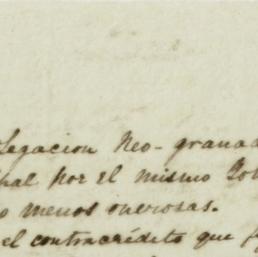 Legacion Neo-granad
nal por el mismo Go
o menos onerosas.
el contracrédito que